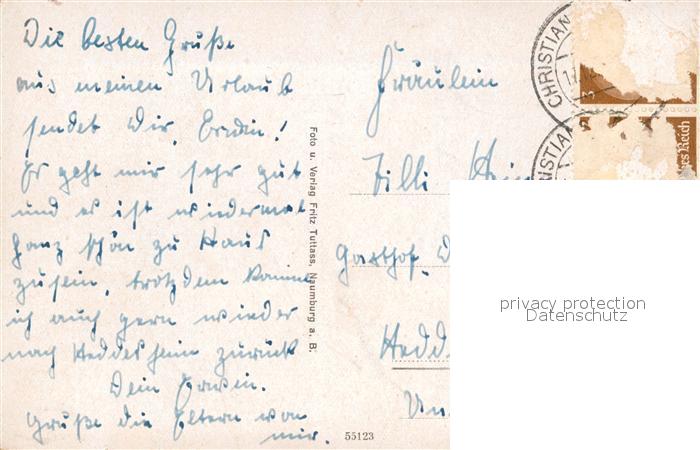 Die besten Grüße
aus meinen Urlaub
sendet Dir, Erwin!
Es geht mir sehr gut
und es ist wiedermal
ganz schön zu Haus
zusein, trotzdem komme
ich auch gern wieder
nach Heddesheim zurück
Dein Erwin.
Grüße die Eltern von
mir.
Foto u. Verlag Fritz Tuttass, Naumburg a. B.
55123
Fräulein
Zilli
Gasthof
Hedd
Un
CHRISTIAN
3
RISTIAN
es Reich
privacy protection
Datenschutz